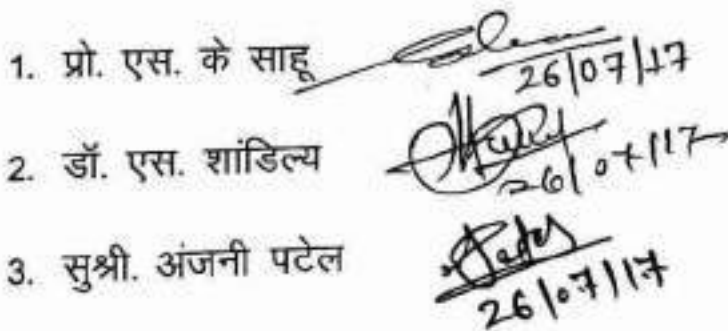 1. प्रो. एस. के साहू
26/07/17
2. डॉ. एस. शांडिल्य
26/07/17
3. सुश्री. अंजनी पटेल
26/07/17